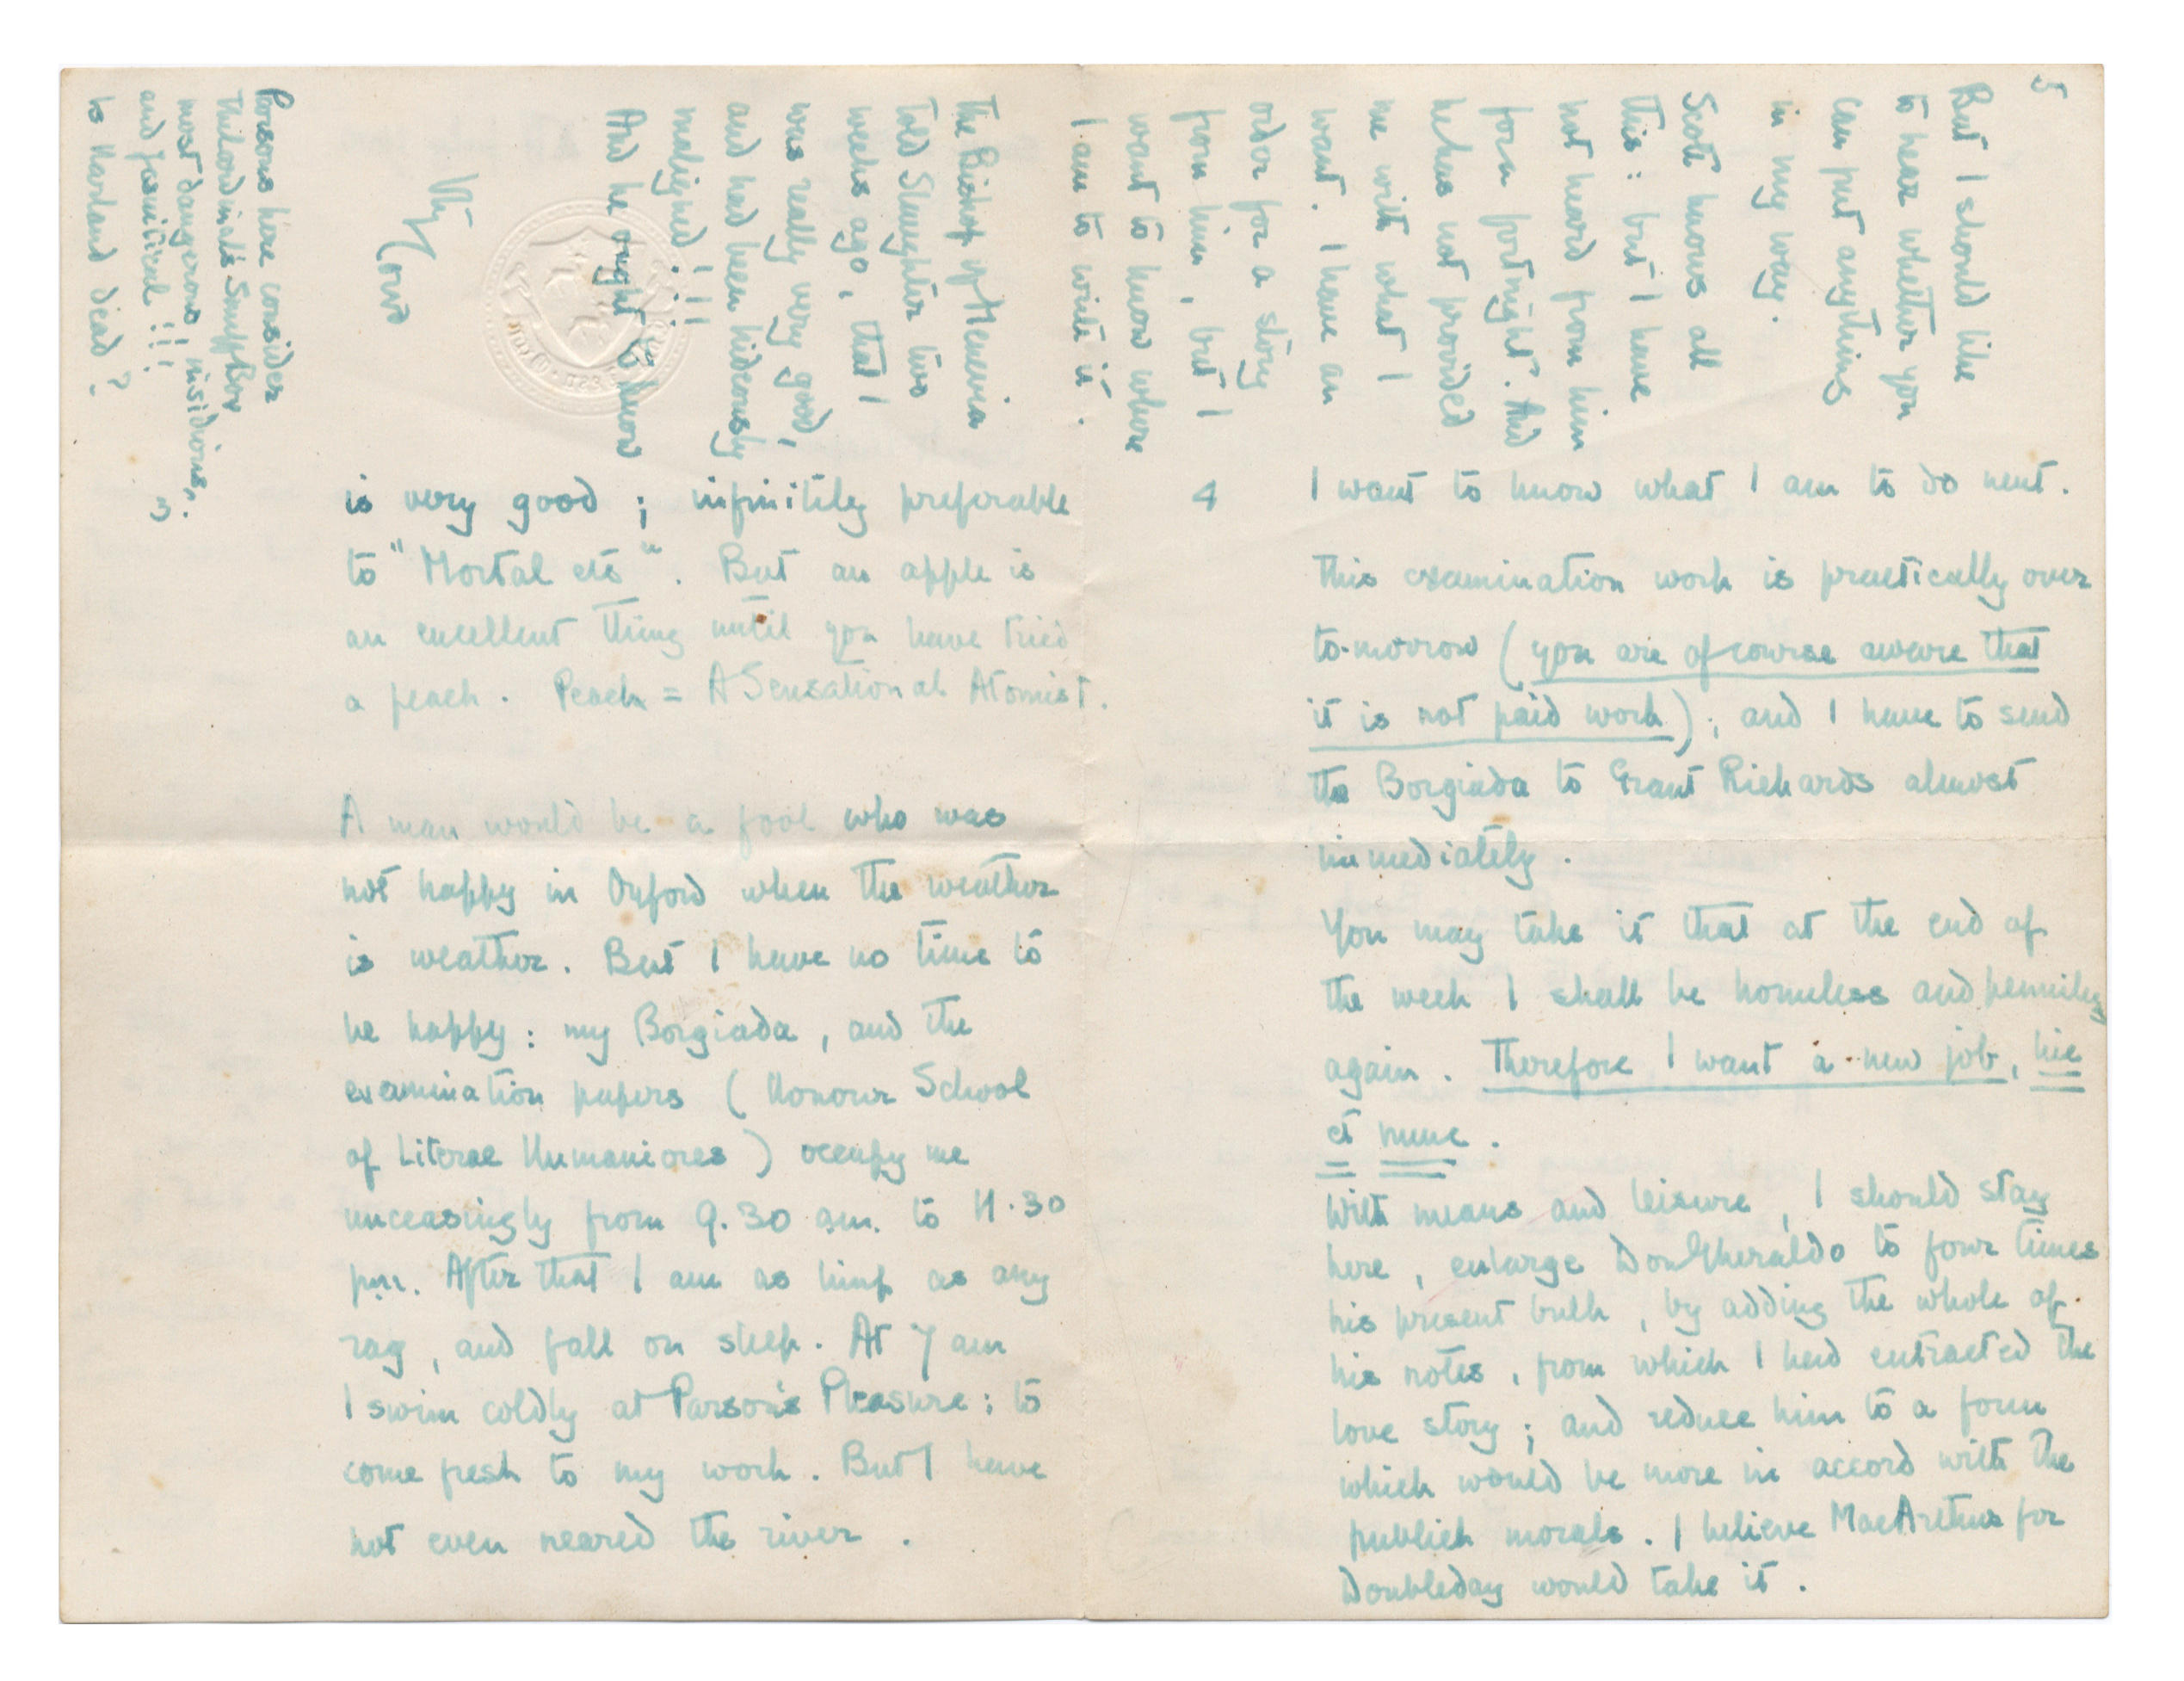 3.
is very good ; infinitely preferable
to "Mortal etc". But an apple is
an excellent thing until you have tried
a peach. Peach = A Sensational Atomist.
A man would be a fool who was
not happy in Oxford when the weather
is weather. But I have no time to
be happy : my Borgiada, and the
examination papers (Honour School
of Literae Humaniores) occupy me
unceasingly from 9.30 am. to 11.30
p.m. After that I am as limp as any
rag, and fall on sleep. At 7 am
I swim coldly at Parson's Pleasure ; to
come fresh to my work. But I have
not even neared the river.
4
I want to know what I am to do next.
This examination work is practically over
to-morrow (you are of course aware that
it is not paid work) ; and I have to send
the Borgiada to Grant Richards almost
immediately.
You may take it that at the end of
the week I shall be homeless and penniless
again. Therefore I want a new job, hic
et nunc.
With means and leisure, I should stay
here, enlarge Don Gheraldo to four times
his present bulk, by adding the whole of
his notes, from which I had extracted the
love story ; and reduce him to a form
which would be more in accord with the
publick morals. I believe MacArthur for
Doubleday would take it.
5
But I should like
to hear whether you
can put anything
in my way.
Scott knows all
this : but I have
not heard from him
for a fortnight. And
he has not provided
me with what I
want. I have an
order for a story
from him, but I
want to know where
I am to write it.
The Bishop of Menevia
told Slaughter two
weeks ago, that I
was really very good,
and had been hideously
maligned !!!!
And he ought to know
Parsons here consider
The Cardinal's Snuff Box
most dangerous, insidious,
and Jesuitical !!!
Is Harland dead ?